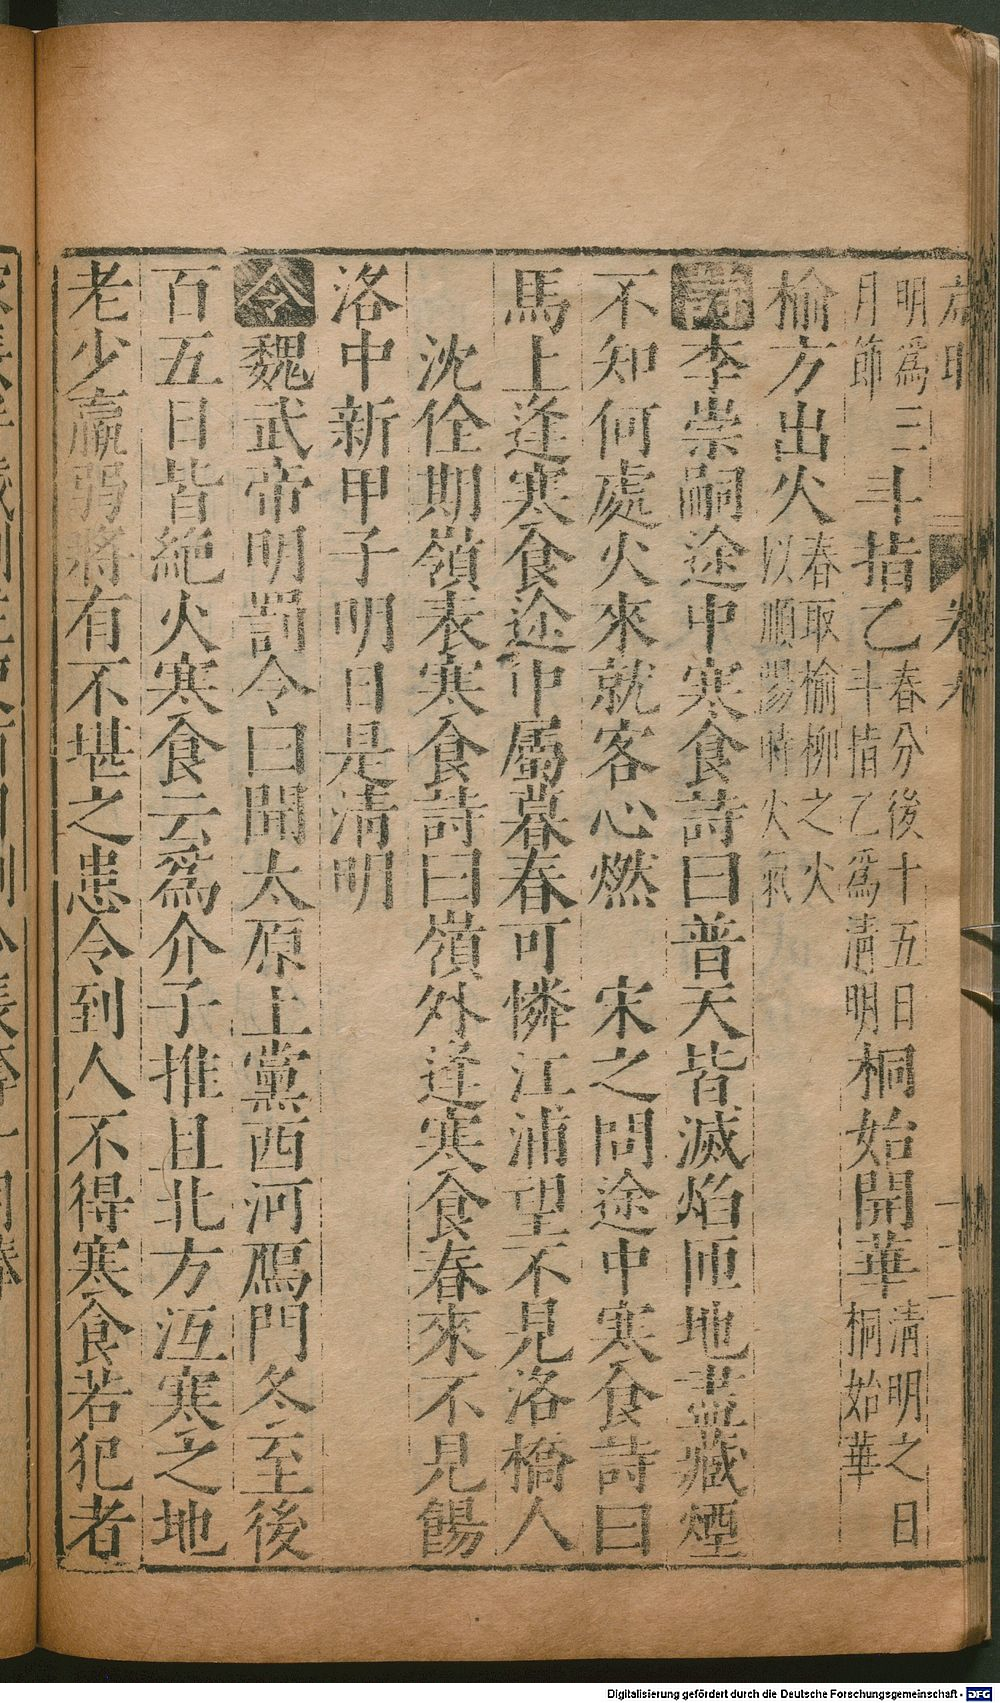 明爲三斗指乙春分後十五日斗指乙爲清明桐始開華清明之日桐始華
月節
榆方出火春取榆柳之火以順陽時火氣
詩李崇嗣途中寒食詩曰普天皆滅焰匝地盡藏煙
不知何處火來就客心燃　宋之問途中寒食詩曰
馬上逢寒食途中屬暮春可憐江浦望不見洛橋人
沈佺期嶺表寒食詩曰嶺外逢寒食春來不見餳
洛中新甲子明日是清明
令魏武帝明罰令曰聞太原上黨西河鴈門冬至後
百五日皆絶火寒食云爲介子推且北方沍寒之地
老少羸弱將有不堪之患令到人不得寒食若犯者
Digitalisierung gefördert durch die Deutsche Forschungsgemeinschaft - DFG